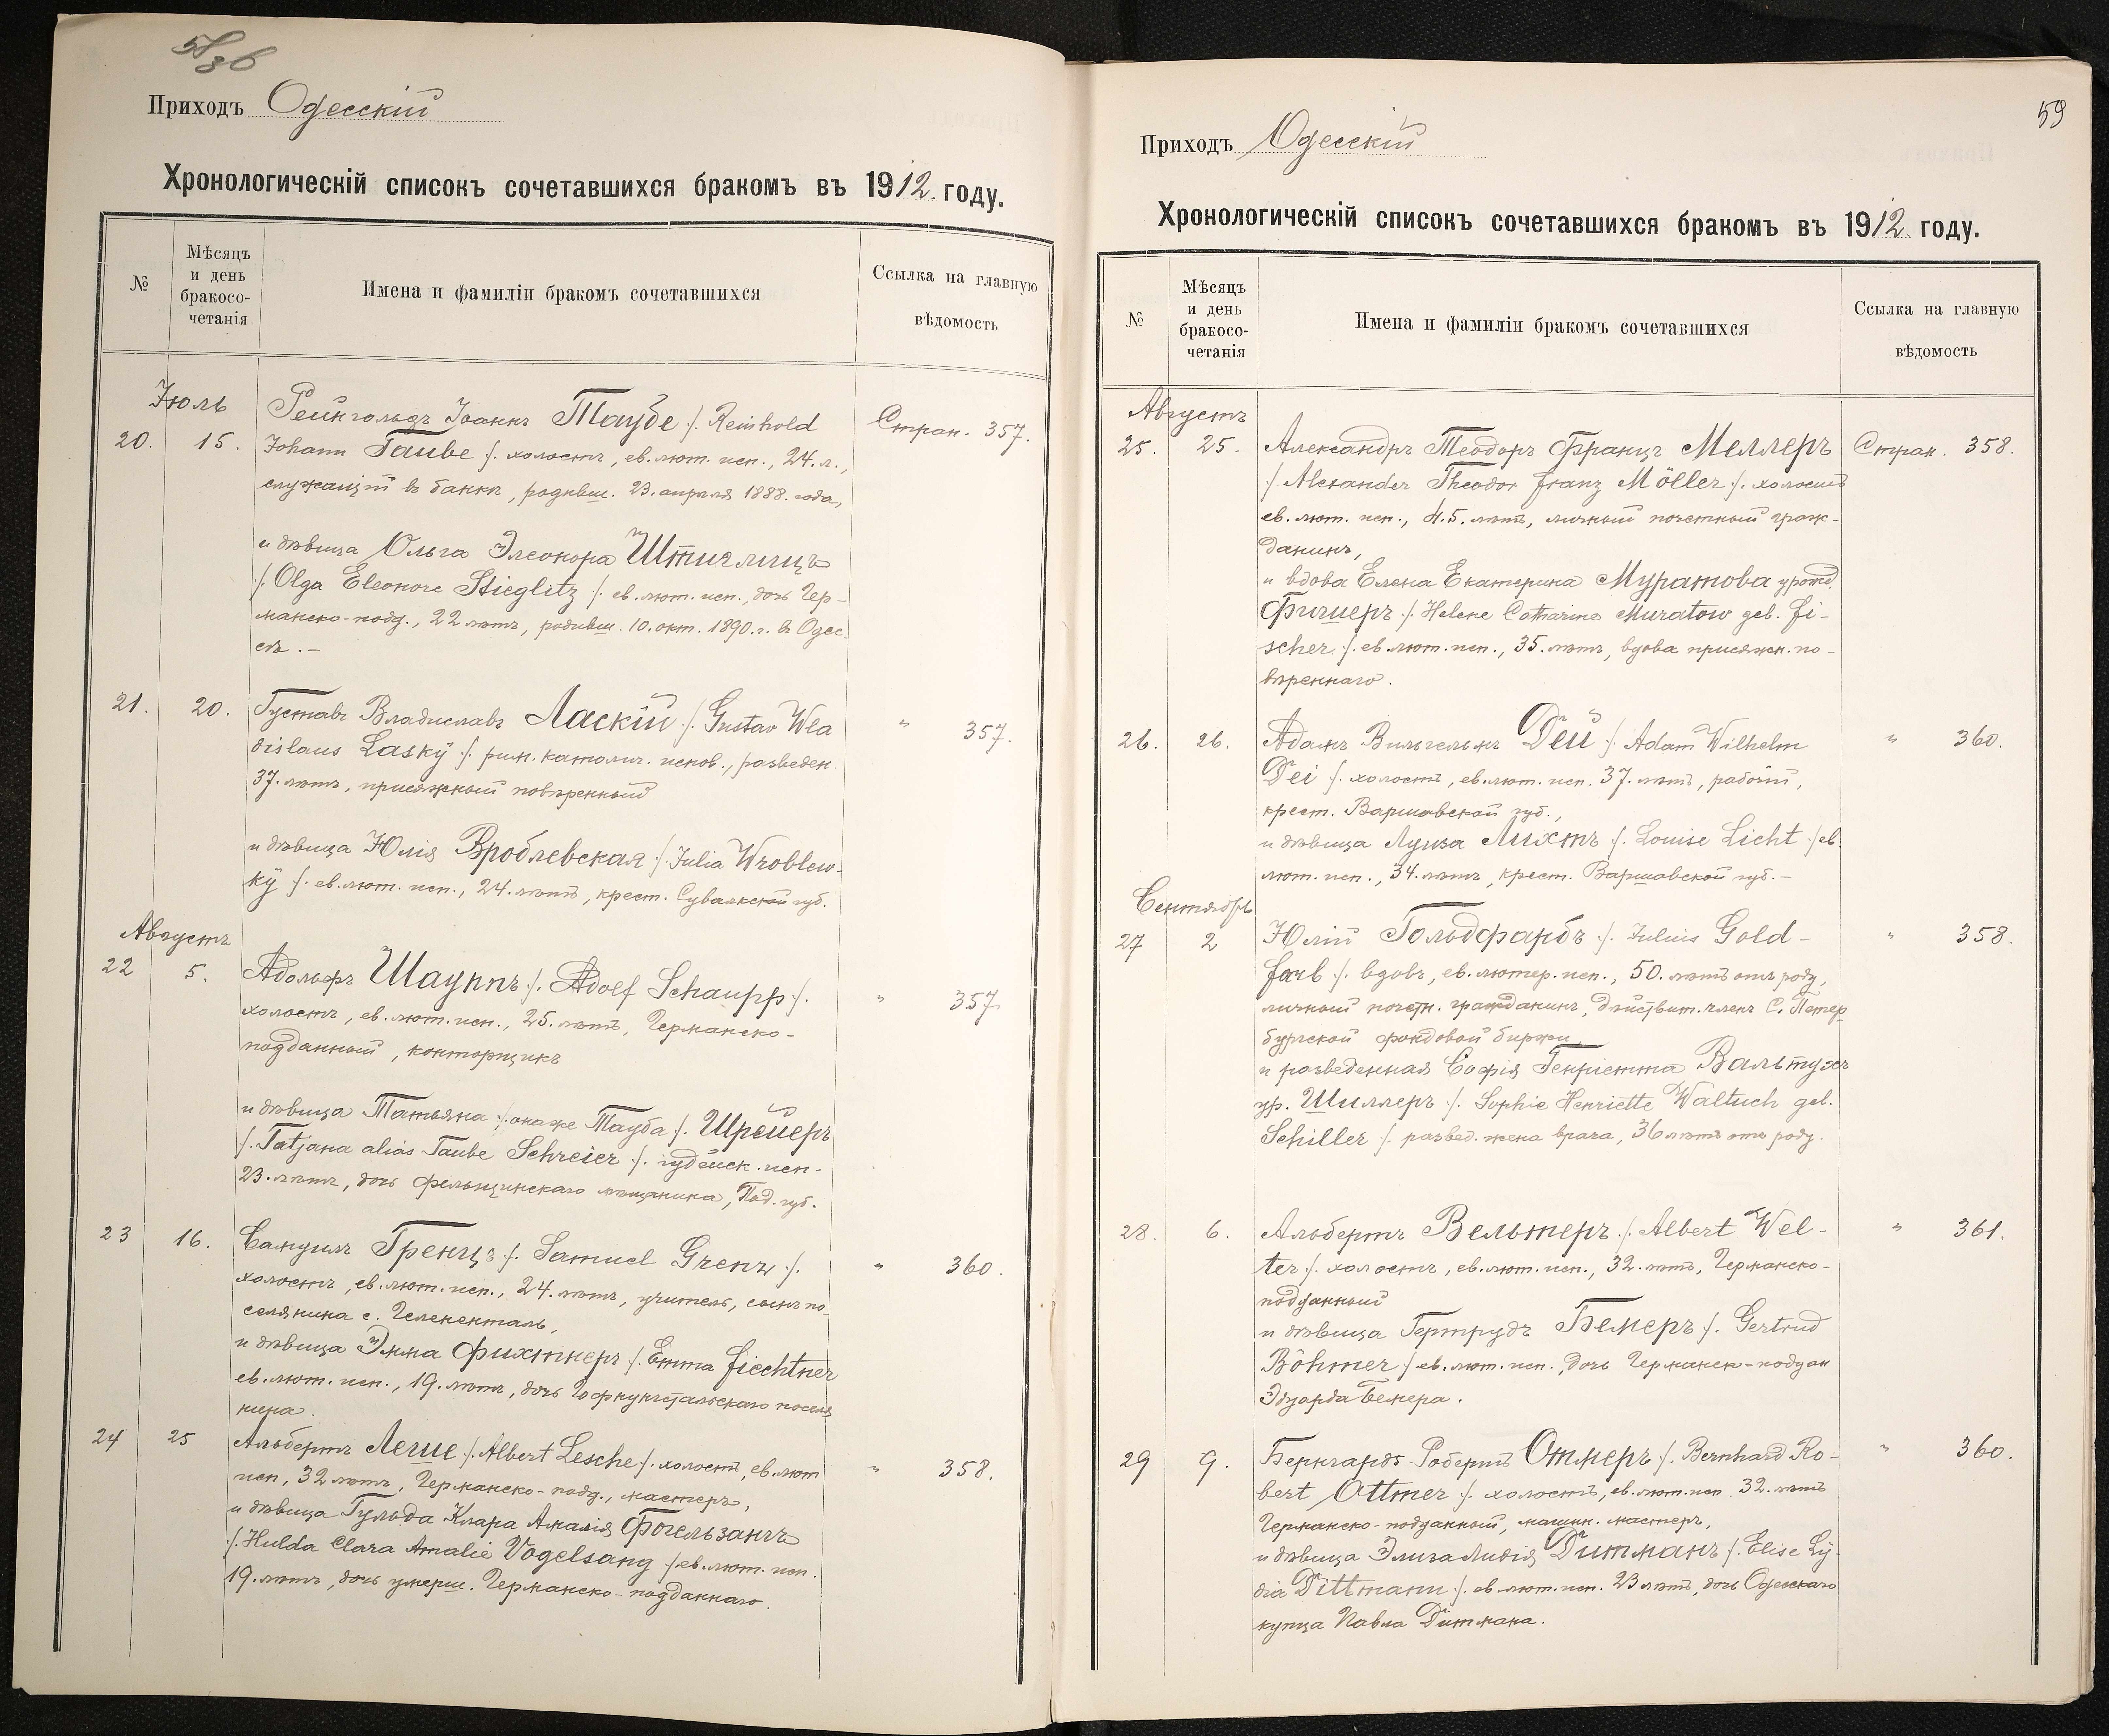 Приходъ Одесскій
Хронологическій списокъ сочетавшихся бракомъ въ 1912 году.
№
Мѣсяцъ
и день
бракосо-
четанія
Имена и фамиліи бракомъ сочетавшихся
Ссылка на главную
вѣдомость
Іюль
20. 15. Рейнгольдъ Іоаннъ Таубе /. Reinhold Стран. 357.
Johann Taube /. холостъ, ев. лют. исп., 24. л.,
служащій въ банкѣ, родивш. 23. апрѣля 1888. года,
и дѣвица Ольга Элеонора Штиглицъ
/. Olga Eleonore Stieglitz /. ев. лют. исп., дочь Гер-
манско-подд., 22 лѣтъ, родивш. 10. окт. 1890. г. въ Одес-
сѣ. –
21. 20. Густавъ Владиславъ Ласкій /. Gustav Wla " 357.
dislaus Lasky /. рим. католич. испов., разведен.
37. лѣтъ, присяжный повѣренный
и дѣвица Юлія Вроблевская /. Julia Wroblew-
ky /. ев. лют. исп., 24. лѣтъ, крест. Сувалкской губ.
Августъ
22 5. Адольфъ Шауппъ /. Adolf Schaupp /. " 357
холостъ, ев. лют. исп., 25. лѣтъ, Германско-
подданный, конторщикъ
и дѣвица Татьяна /. онаже Тауба /. Шрейеръ
/. Tatjana alias Taube Schreier /. іудейск. исп.
23. лѣтъ, дочь фельщинскаго мѣщанина, Под. губ.
23 16. Самуилъ Гренцъ /. Samuel Grenz /. " 360.
холостъ, ев. лют. исп., 24. лѣтъ, учитель, сынъ по-
селянина с. Гелененталь,
и дѣвица Эмма Фихтнеръ /. Emma Fiechtner
ев. лют. исп., 19. лѣтъ, дочь Гофнунгстальскаго поселя
нина.
24 25 Альбертъ Леше /. Albert Lesche /. холостъ, ев. лют " 358.
исп, 32 лѣтъ, Германско-подд., мастеръ,
и дѣвица Гульда Клара Амалія Фогельзангъ
/. Hulda Clara Amalie Vogelsang /. ев. лют. исп.
19. лѣтъ, дочь умерш. Германско-подданнаго.
59
Приходъ Одесскій
Хронологическій списокъ сочетавшихся бракомъ въ 1912 году.
№
Мѣсяцъ
и день
бракосо-
четанія
Имена и фамиліи бракомъ сочетавшихся
Ссылка на главную
вѣдомость
Августъ
25. 25. Александръ Теодоръ Францъ Меллеръ Стран. 358.
/. Alexander Theodor Franz Möller /. холостъ
ев. лют. исп., 45. лѣтъ, личный почетный граж-
данинъ,
и вдова Елена Екатерина Муратова урожд.
Фишеръ /. Helene Catharine Muratow geb. Fi-
scher /. ев. лют. исп., 35. лѣтъ, вдова присяжн. по-
вѣреннаго.
26. 26. Адамъ Вильгельмъ Дей /. Adam Wilhelm " 360.
Dei /. холостъ, ев. лют. исп. 37. лѣтъ, рабочій,
крест. Варшавской губ.,
и дѣвица Луиза Лихтъ /. Louise Licht /. ев.
лют. исп., 34. лѣтъ, крест. Варшавской губ. –
Сентябрь
27 2 Юлій Гольдфарбъ /. Julius Gold- " 358.
farb /. вдовъ, ев. лютер. исп., 50. лѣтъ отъ роду,
личный почетн. гражданинъ, дѣйствит. членъ С. Петер
бургской фондовой биржи,
и разведенная Софія Генріетта Вальтухъ
ур. Шиллеръ /. Sophie Henriette Waltuch geb.
Schiller /. развед. жена врача, 36 лѣтъ отъ роду.
28. 6. Альбертъ Вельтеръ /. Albert Wel- " 361.
ter /. холостъ, ев. лют. исп., 32. лѣтъ, Германско-
подданный
и дѣвица Гертрудъ Бемеръ /. Gertrud
Böhmer /. ев. лют. исп., дочь Германск-поддан
Эдуарда Бемера.
29 9. Бернгардъ Робертъ Отмеръ /. Bernhard Ro- " 360.
bert Ottmer /. холостъ, ев. лют. исп. 32. лѣтъ
Германско-подданный, машин. мастеръ,
и дѣвица Элиза Лидія Дитманъ /. Elise Ly-
dia Dittmann /. ев. лют. исп. 23 лѣтъ, дочь Одесскаго
купца Павла Дитмана.